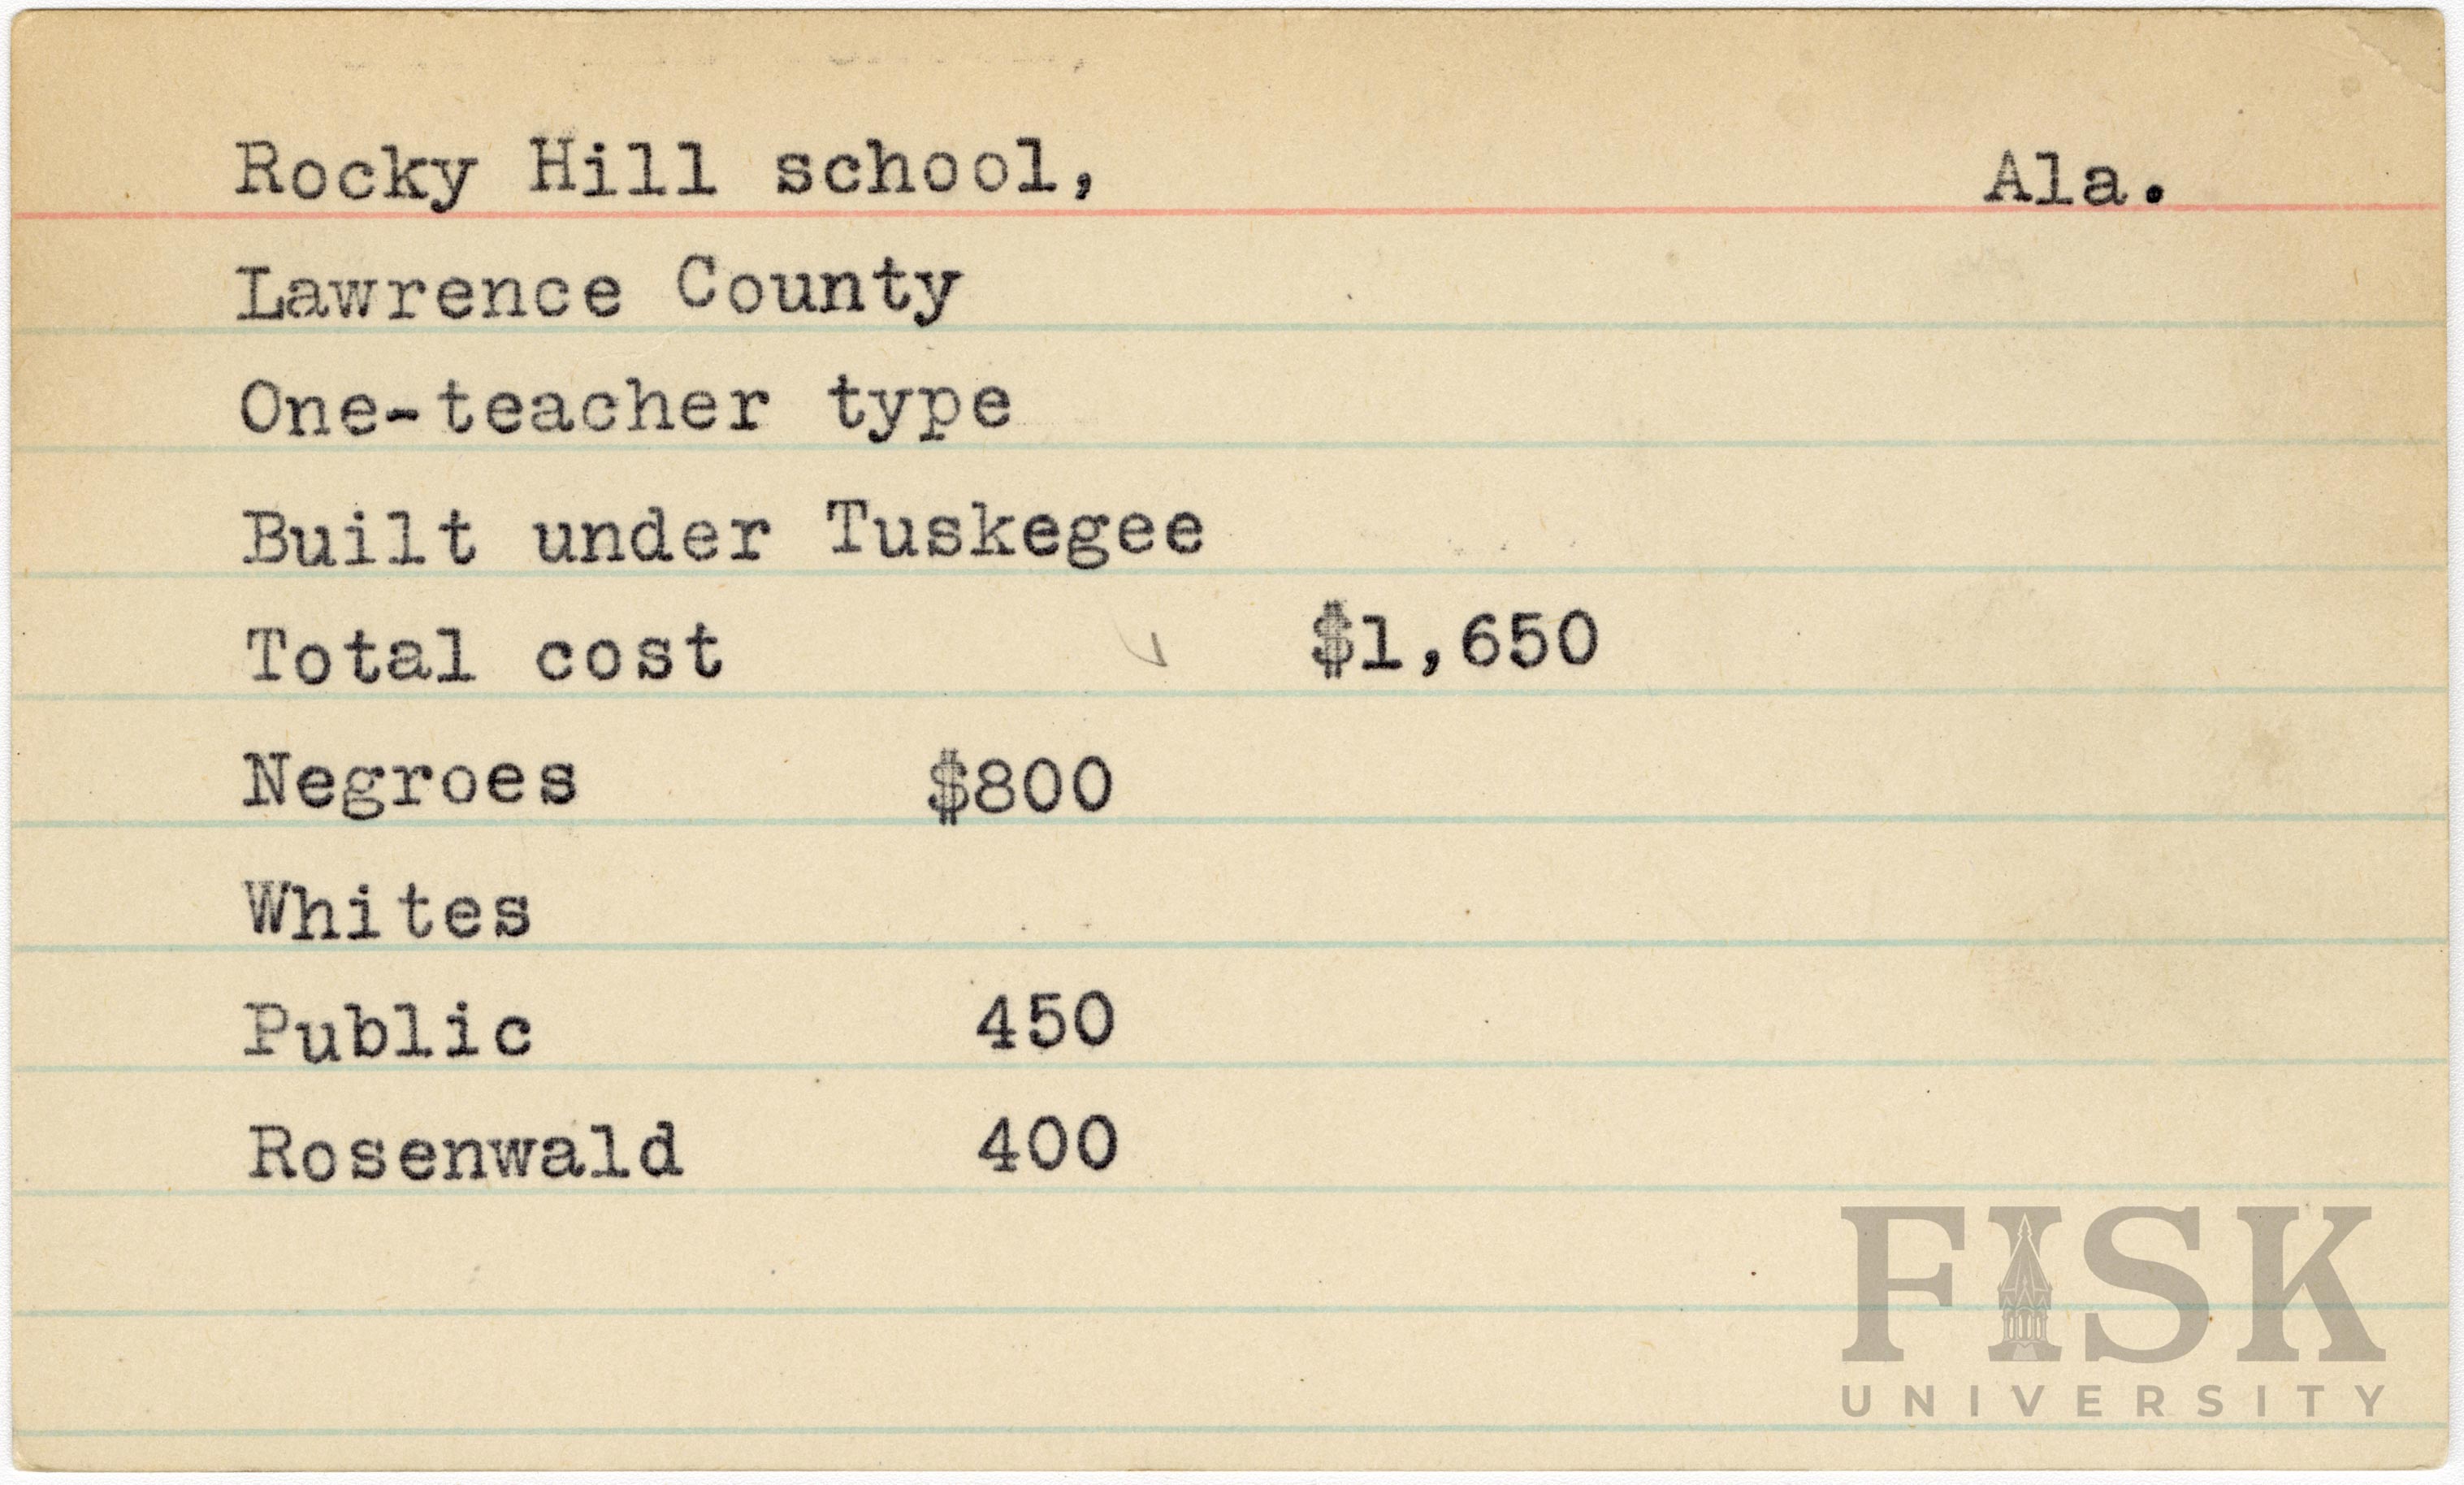 Rocky Hill school, Ala.
Lawrence County
One-teacher type
Built under Tuskegee
Total cost $1,650
Negroes $800
Whites
Public 450
Rosenwald 400
FISK
UNIVERSITY